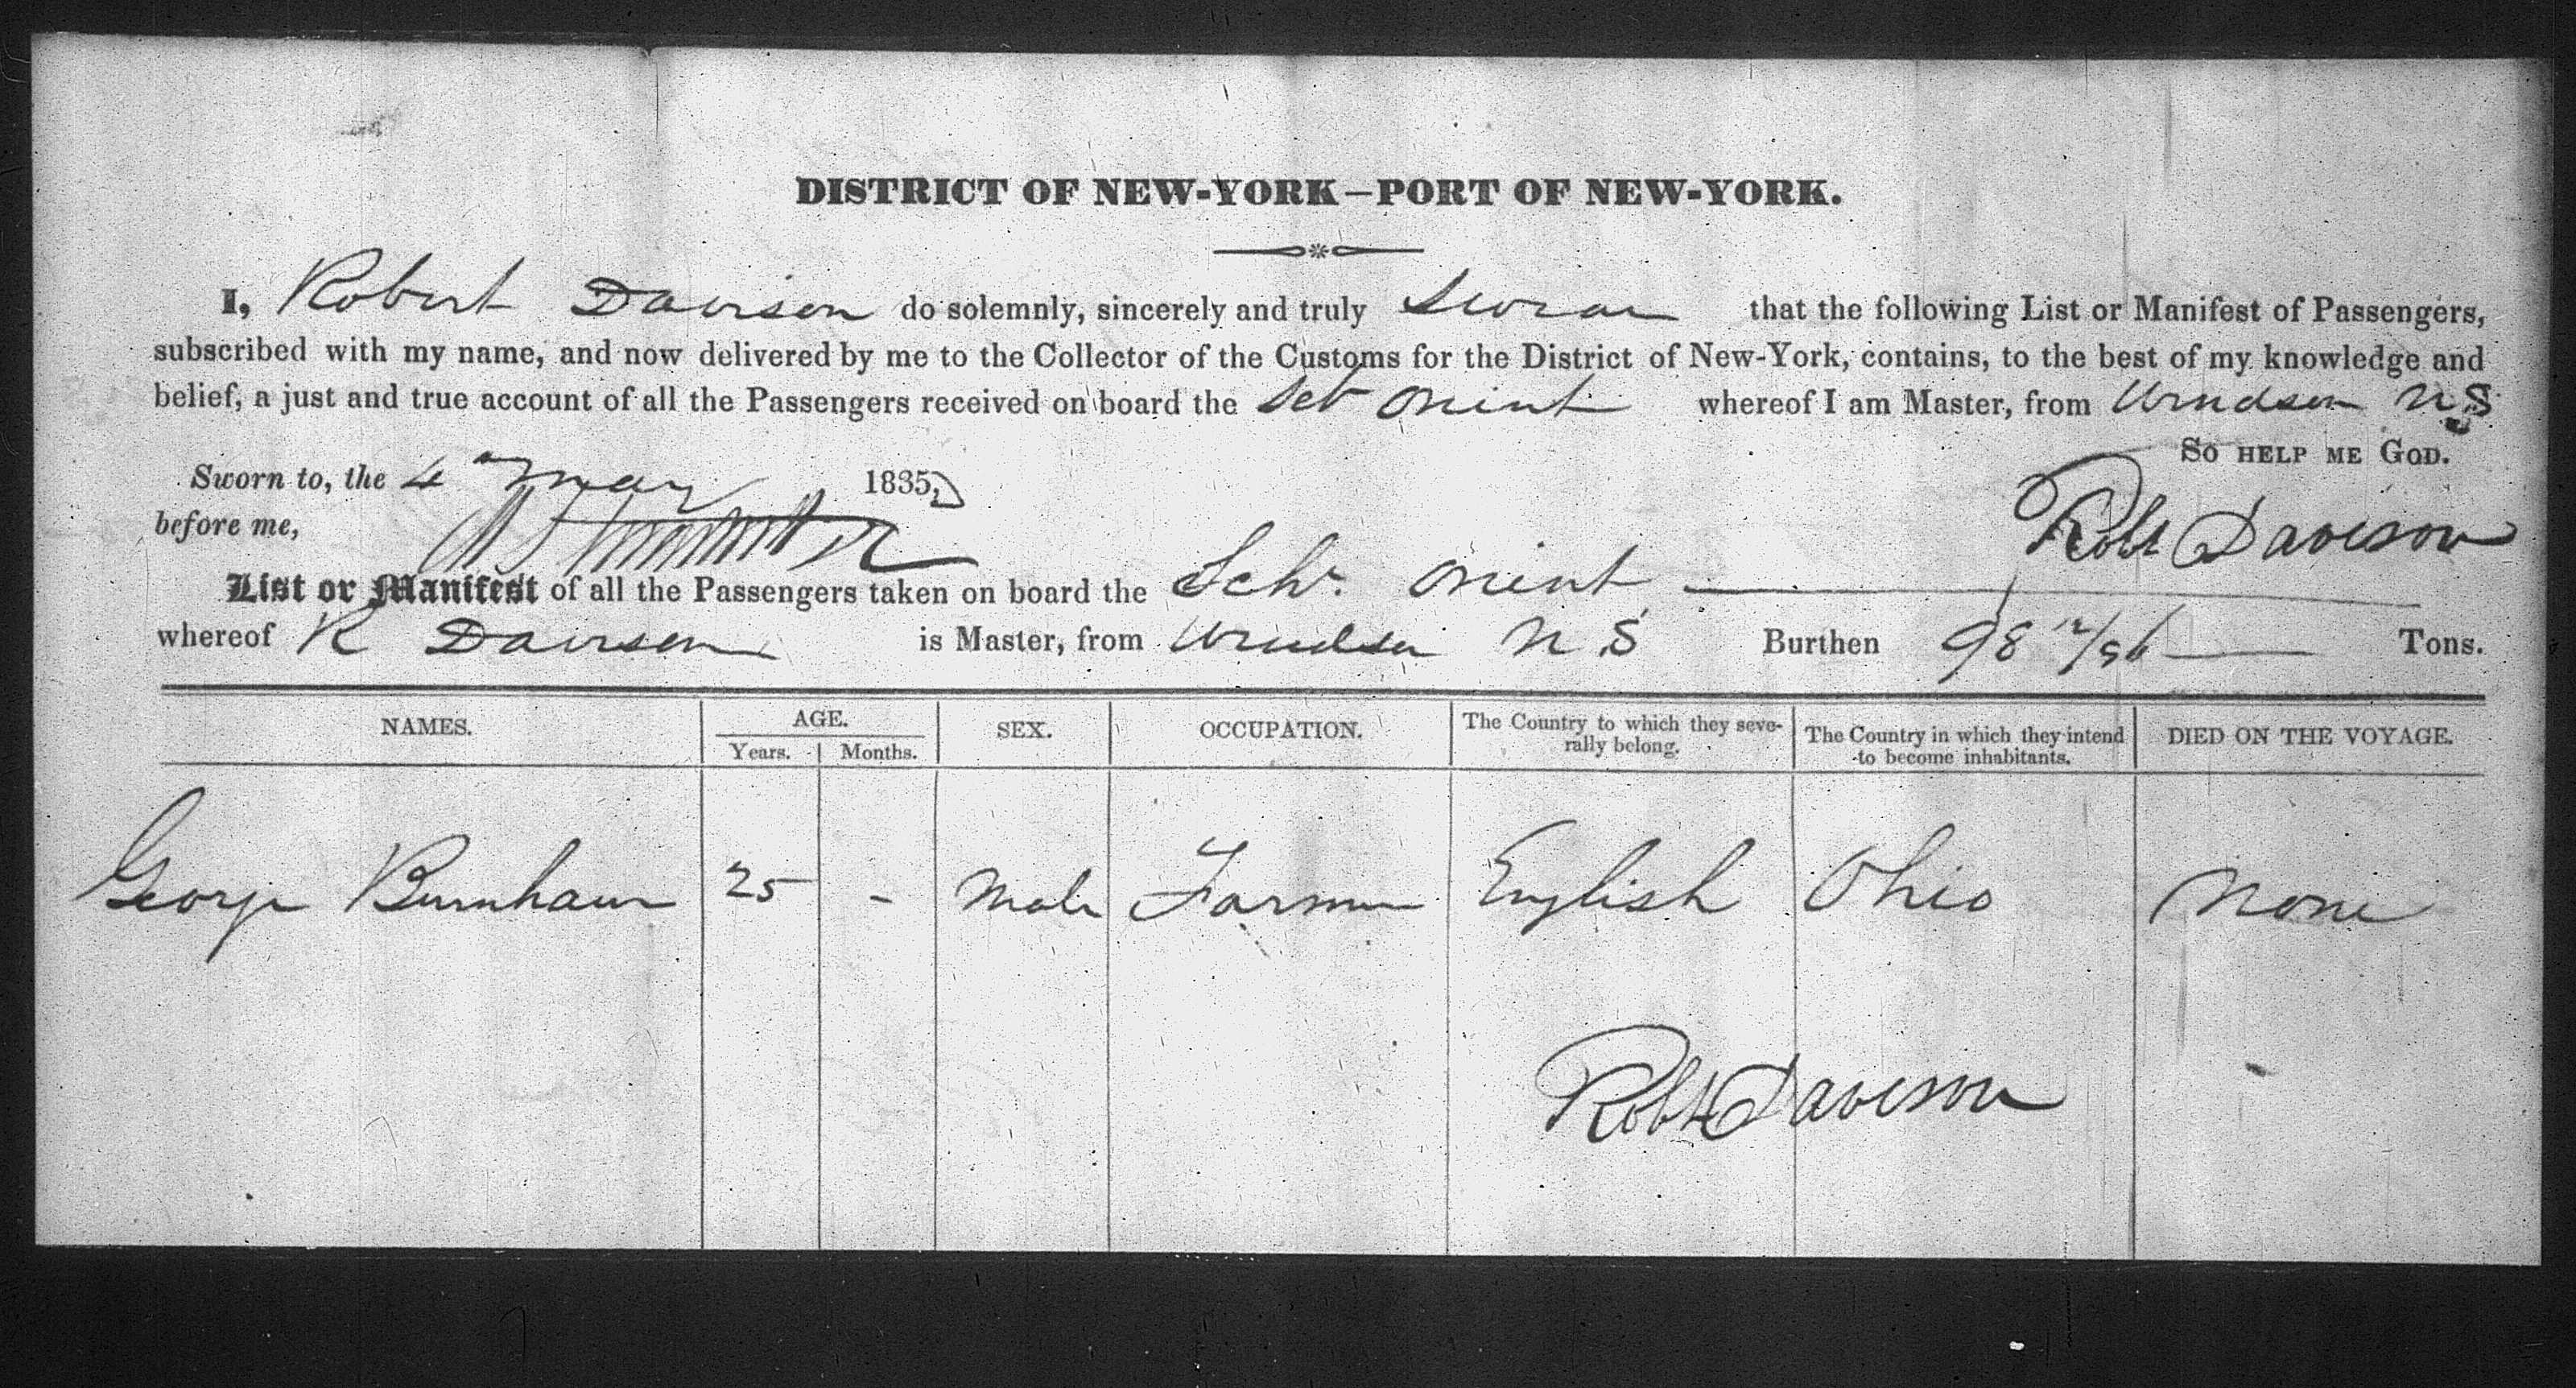 DISTRICT OF NEW-YORK—PORT OF NEW-YORK.
I, Robert Davison do solemnly, sincerely and truly Swear that the following List or Manifest of Passengers,
subscribed with my name, and now delivered by me to the Collector of the Customs for the District of New-York, contains, to the best of my knowledge and
belief, a just and true account of all the Passengers received on board the Sch Orient whereof I am Master, from Windsor N.S
SO HELP ME GOD.
Sworn to, the 4 May 1835
before me,
Robt Davison
List or Manifest of all the Passengers taken on board the Schr. Orient
whereof R Davison is Master, from Windsor N.S Burthen 98 Tons.
NAMES. AGE. SEX. OCCUPATION. The Country to which they seve- The Country in which they intend DIED ON THE VOYAGE.
Years. Months. rally belong. to become inhabitants.
George Burnham 25 - Male Farmer English Ohio None
Robt Davison